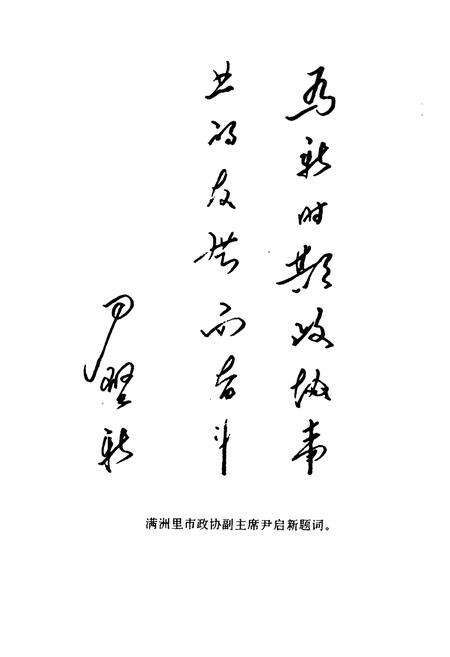 为新时期政协事
业的发展而奋斗
尹启新
满洲里市政协副主席尹启新题词。